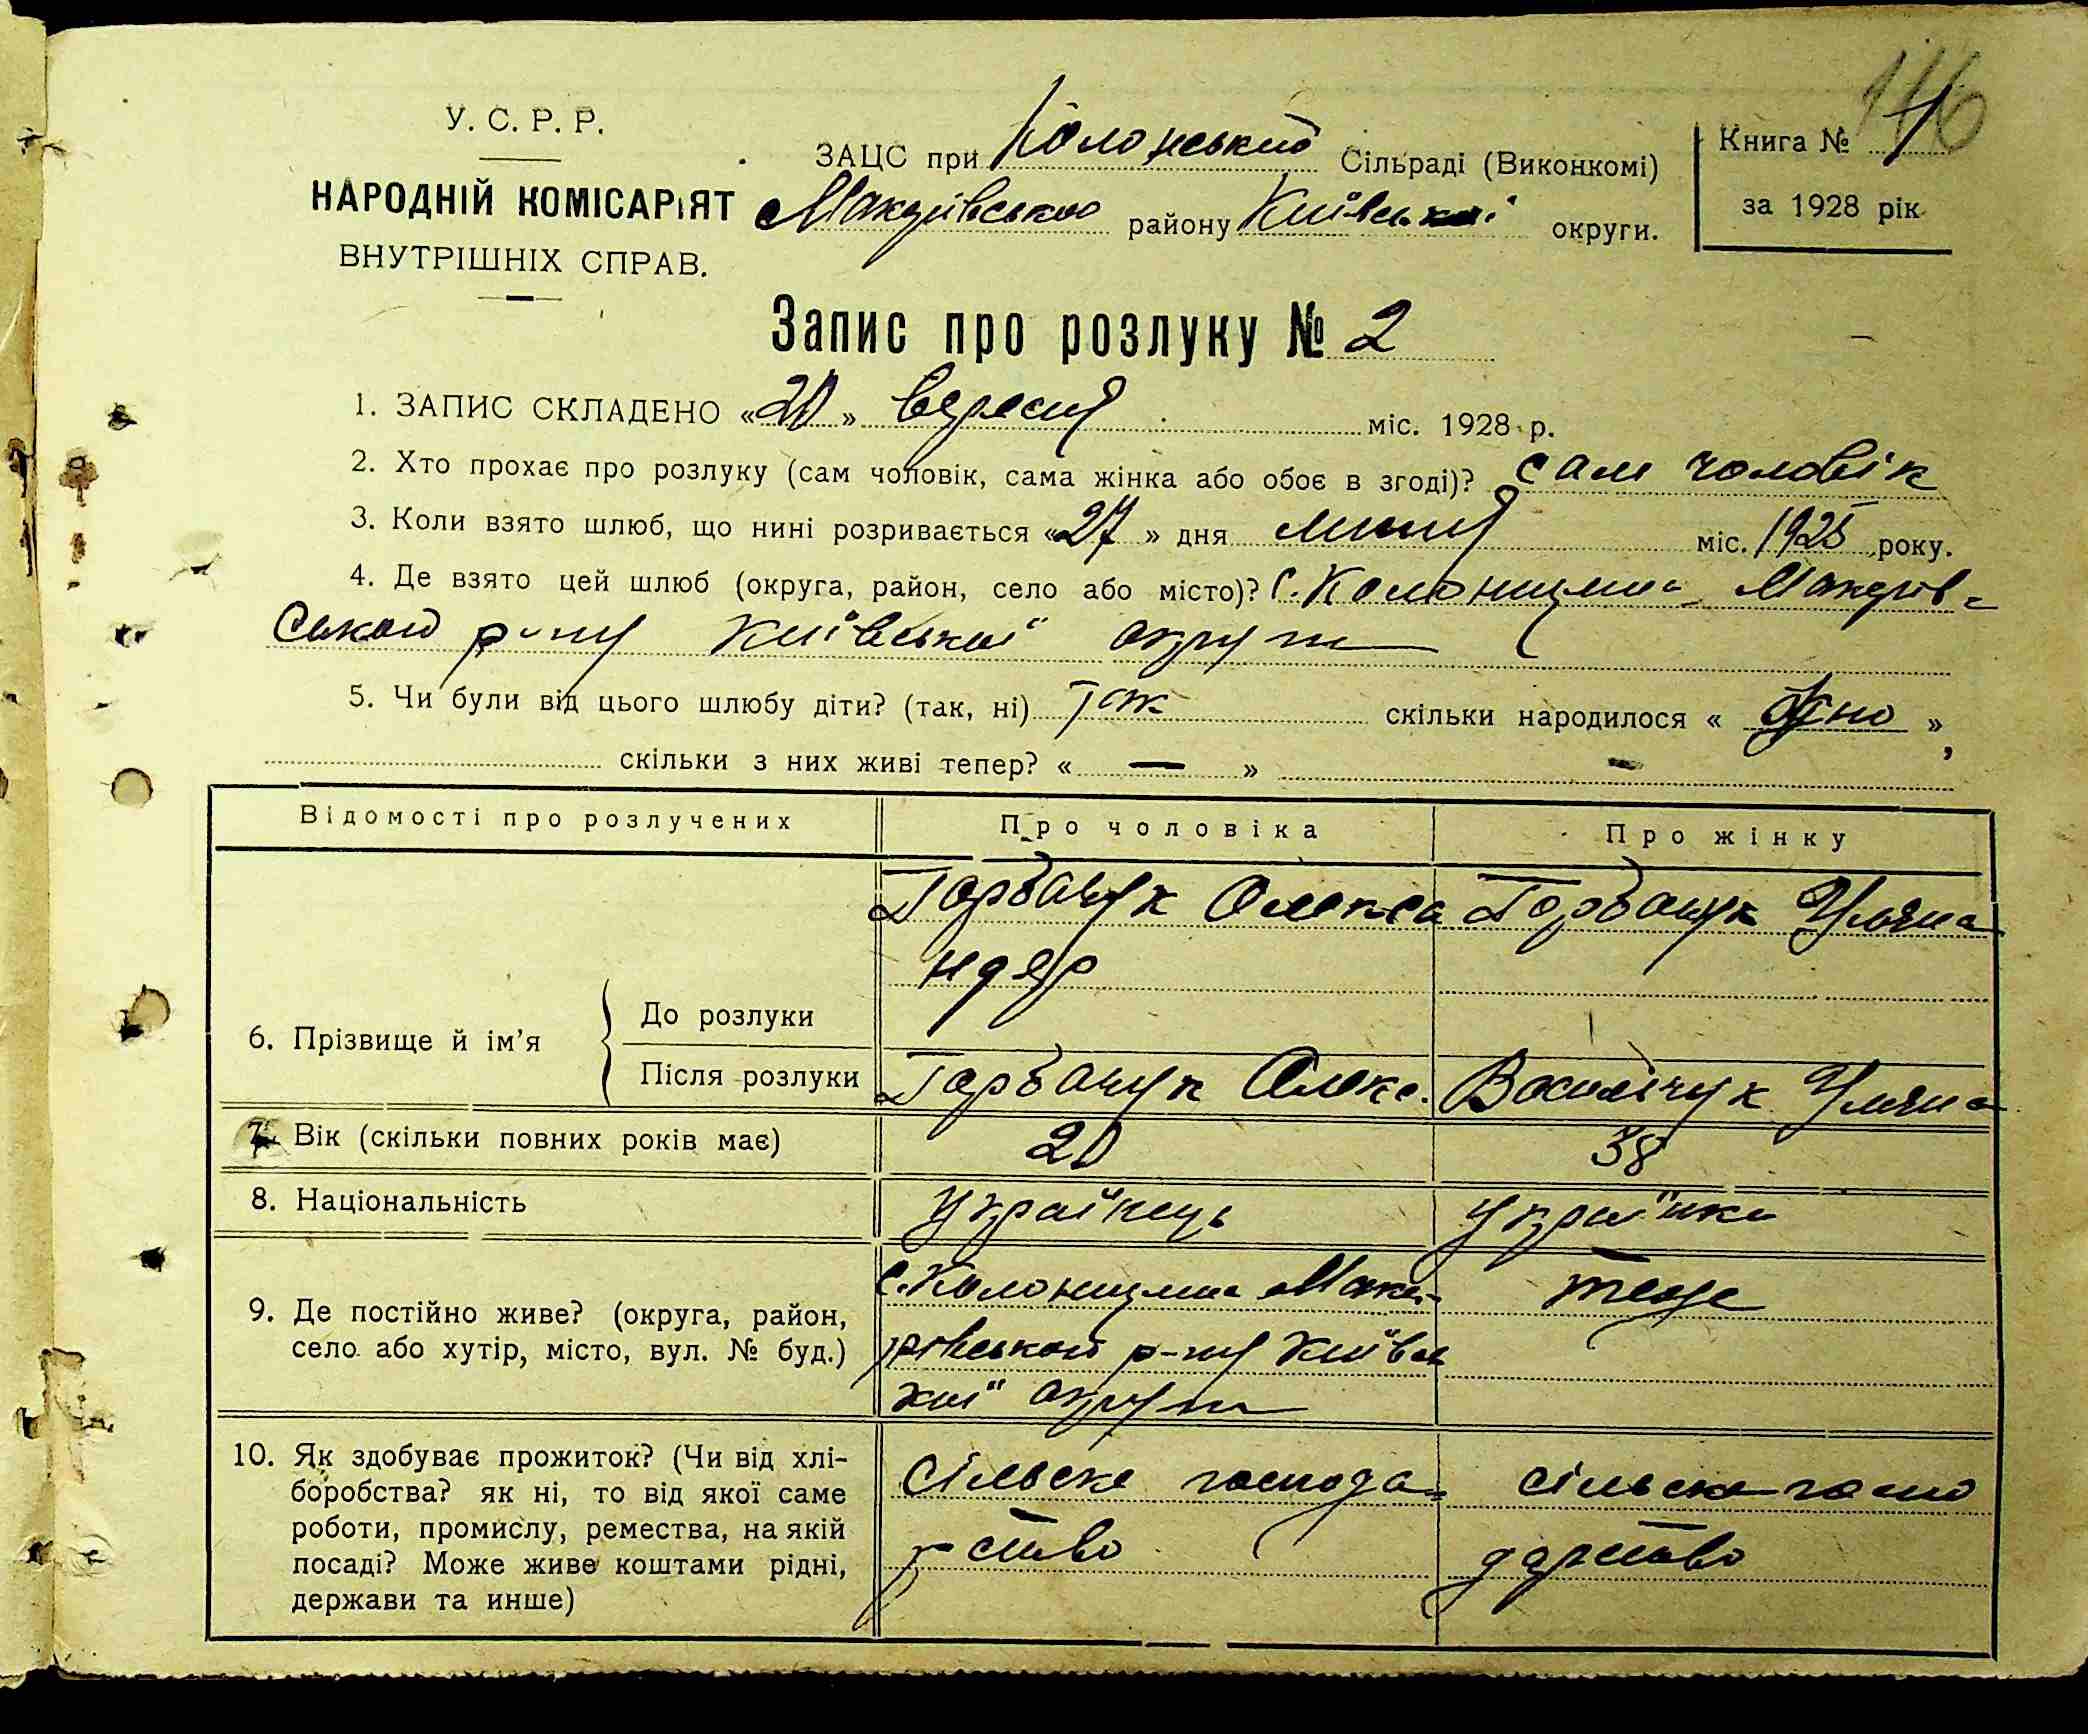 146
У. С. Р. Р.
НАРОДНІЙ КОМІСАРІЯТ
ВНУТРІШНІХ СПРАВ.
ЗАЦС при Колонський Сільраді (Виконкомі)
Макарівського району Київської округи.
Книга № 1
за 1928 рік
Запис про розлуку № 2
1. ЗАПИС СКЛАДЕНО «20» вересня міс. 1928 р.
2. Хто прохає про розлуку (сам чоловік, сама жінка або обоє в згоді)? сам чоловік
3. Коли взято шлюб, що нині розривається «27» дня липня міс. 1925 року.
4. Де взято цей шлюб (округа, район, село або місто)? С. Колонщина Макарів-
ського р-ну Київської округи
5. Чи були від цього шлюбу діти? (так, ні) так скільки народилося « одно »,
скільки з них живі тепер? « — » —
Відомості про розлучених Про чоловіка Про жінку
Горбащук Олекса Горбащук Уляна
ндер
6. Прізвище й ім'я
До розлуки
Після розлуки Горбащук Олекс. Васильчук Уляна
7. Вік (скільки повних років має) 20 38
8. Національність Українець Українка
9. Де постійно живе? (округа, район,
село або хутір, місто, вул. № буд.)
с. Колонщина Мака-
рівського р-ну Київсь
кої округи
теж
10. Як здобуває прожиток? (Чи від хлі-
боробства? як ні, то від якої саме
роботи, промислу, ремества, на якій
посаді? Може живе коштами рідні,
держави та инше)
Сільське господа-
рство
сільське госпо
дарство